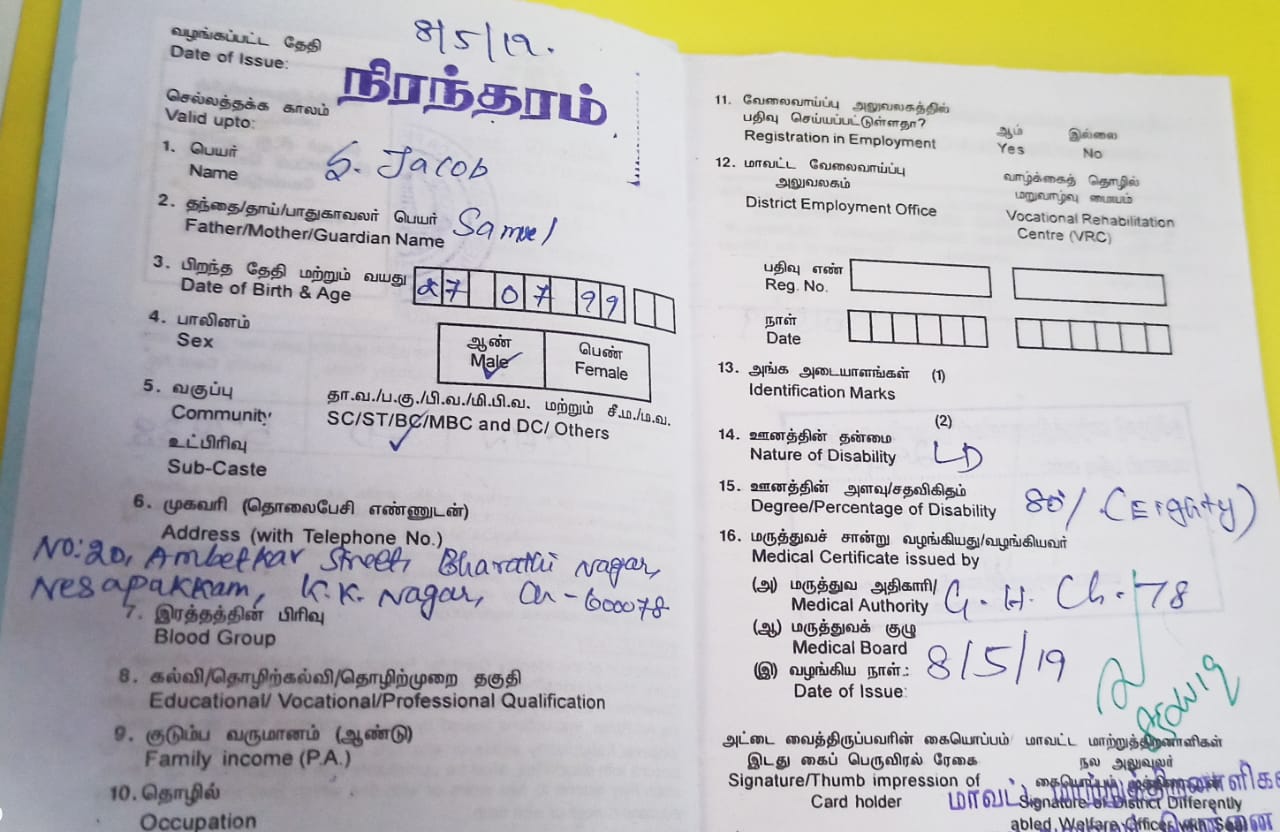 வழங்கப்பட்ட தேதி
Date of Issue: 8/5/19.
செல்லத்தக்க காலம் நிரந்தரம்
Valid upto:
1. பெயர்
Name S. Jacob
2. தந்தை/தாய்/பாதுகாவலர் பெயர்
Father/Mother/Guardian Name Samuel
3. பிறந்த தேதி மற்றும் வயது
Date of Birth & Age 27 07 99
4. பாலினம்
Sex
ஆண் பெண்
Male Female
5. வகுப்பு தா.வ./ப.கு./பி.வ./மி.பி.வ. மற்றும் சீ.ம./ம.வ.
Community SC/ST/BC/MBC and DC/ Others
உட்பிரிவு
Sub-Caste
6. முகவரி (தொலைபேசி எண்ணுடன்)
Address (with Telephone No.)
No: 20, Ambetkar Street, Bharathi Nagar,
Nesapakkam, K.K. Nagar, Ch-600078
7. இரத்தத்தின் பிரிவு
Blood Group
8. கல்வி/தொழிற்கல்வி/தொழிற்முறை தகுதி
Educational/ Vocational/Professional Qualification
9. குடும்ப வருமானம் (ஆண்டு)
Family income (P.A.)
10. தொழில்
Occupation
11. வேலைவாய்ப்பு அலுவலகத்தில்
பதிவு செய்யப்பட்டுள்ளதா? ஆம் இல்லை
Registration in Employment Yes No
12. மாவட்ட வேலைவாய்ப்பு வாழ்க்கைத் தொழில்
அலுவலகம் மறுவாழ்வு மையம்
District Employment Office Vocational Rehabilitation
Centre (VRC)
பதிவு எண்
Reg. No.
நாள்
Date
13. அங்க அடையாளங்கள் (1)
Identification Marks
(2)
14. ஊனத்தின் தன்மை
Nature of Disability LD
15. ஊனத்தின் அளவு/சதவிகிதம்
Degree/Percentage of Disability 80% (Eighty)
16. மருத்துவச் சான்று வழங்கியது/வழங்கியவர்
Medical Certificate issued by
(அ) மருத்துவ அதிகாரி/
Medical Authority G. H. Ch-78
(ஆ) மருத்துவக் குழு
Medical Board
(இ) வழங்கிய நாள்.: 8/5/19
Date of Issue:
அட்டை வைத்திருப்பவரின் கையொப்பம்/ மாவட்ட மாற்றுத்திறனாளிகள்
இடது கைப் பெருவிரல் ரேகை நல அலுவலர்
Signature/Thumb impression of
Card holder Signature of District Differently
abled Welfare Officer with Seal